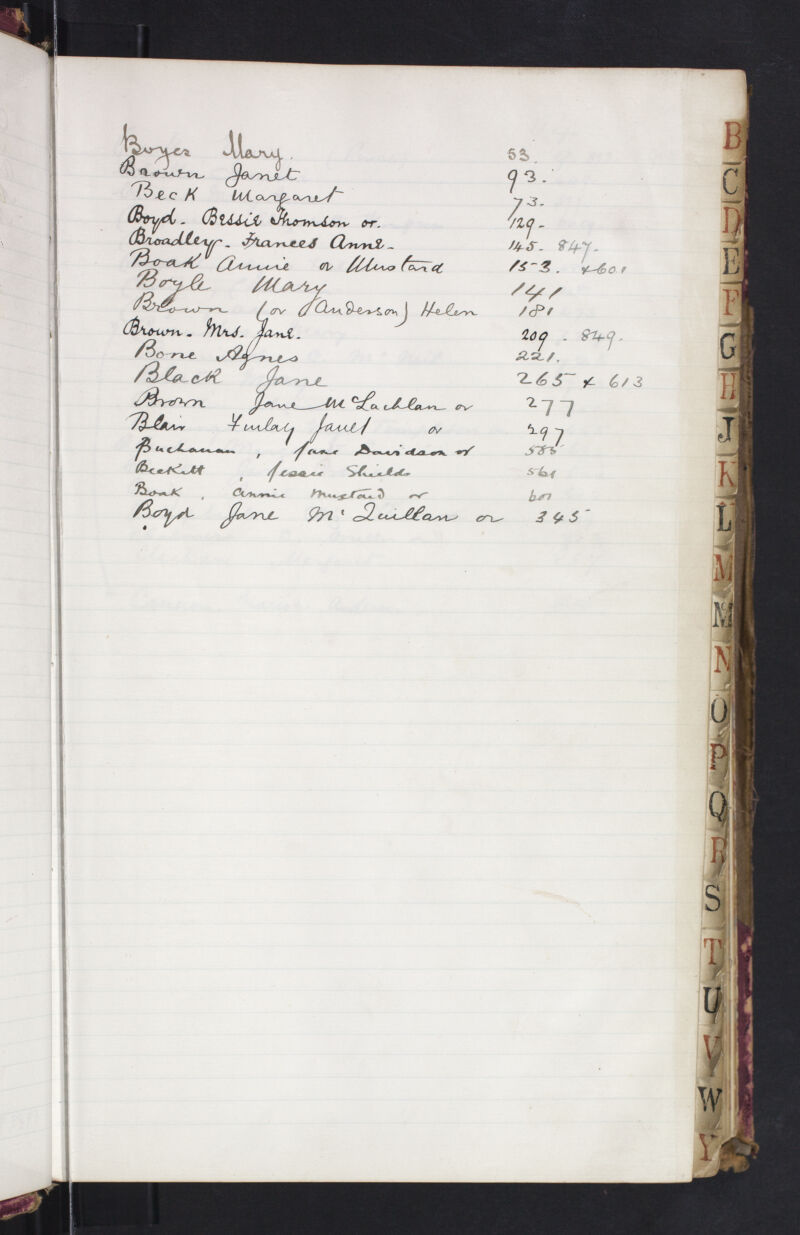 Boyes Mary. 53.
Brown Janet 93.
Beck Margaret 73.
Boyd - Bessie Thomson or. 129-
Broadley - Frances Anne - 145 - 847 -
Boak Annie or Mustard 153. & 601
Boyle Mary 141
Brown (or Anderson) Helen 181
Brown - Mrs. Jane. 209 - 849.
Bone Agnes 221.
Black Jane 265 & 613
Brown Jane McLachlan or 277
Blair Finlay Janet or 297
Buchanan, Jane Davidson or 585
Beckett, Jessie Shields 561
Boak, Annie Mustard or 601
Boyd Jane McQuillan or 345
B
C
D
E
F
G
H
J
K
L
M
M
N
O
P
Q
R
S
T
U
V
W
Y